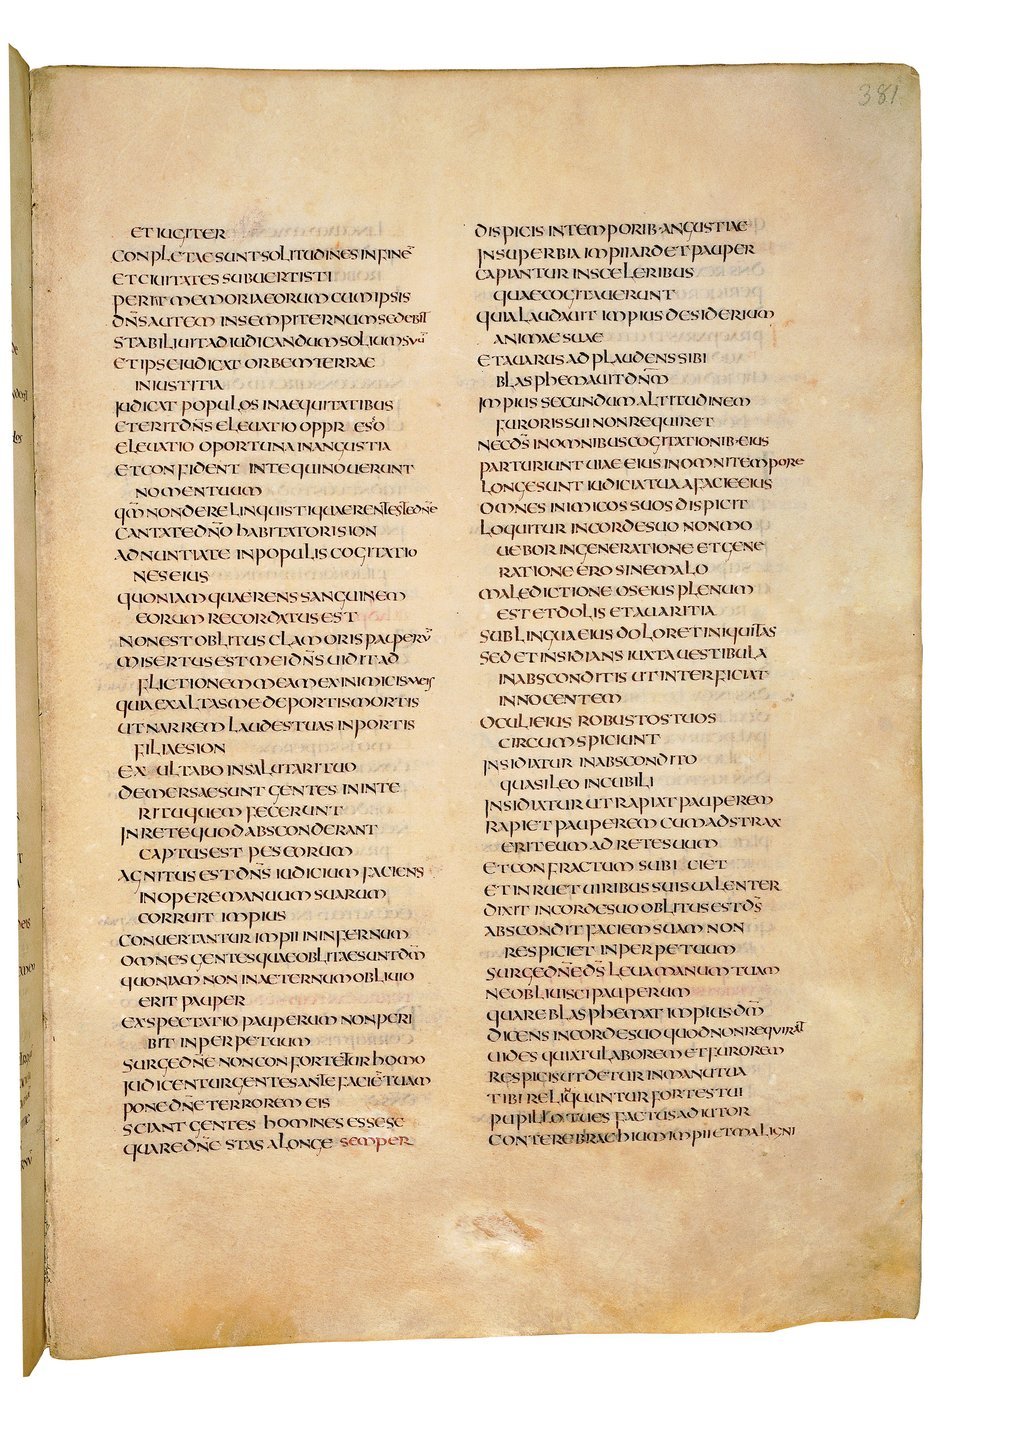 381
ET IUGITER
CONPLETAE SUNT SOLITUDINES IN FINĒ
ET CIUITATES SUBUERTISTI
PERIIT MEMORIA EORUM CUM IPSIS
DN̄S AUTEM IN SEMPITERNUM SEDEBIT
STABILIUIT AD IUDICANDUM SOLIUM SUŪ
ET IPSE IUDICAT ORBEM TERRAE
IN IUSTITIA
IUDICAT POPULOS IN AEQUITATIBUS
ET ERIT DN̄S ELEUATIO OPPRESSO
ELEUATIO OPORTUNA IN ANGUSTIA
ET CONFIDENT IN TE QUI NOUERUNT
NOMEN TUUM
QM̄ NON DERELINQUISTI QUAERENTES TE DN̄E
CANTATE DN̄O HABITATORI SION
ADNUNTIATE IN POPULIS COGITATIO
NES EIUS
QUONIAM QUAERENS SANGUINEM
EORUM RECORDATUS EST
NON EST OBLITUS CLAMORIS PAUPERŪ
MISERTUS EST MEI DN̄S UIDIT AD
FLICTIONEM MEAM EX INIMICIS MEIS
QUIA EXALTAS ME DE PORTIS MORTIS
UT NARREM LAUDES TUAS IN PORTIS
FILIAE SION
EXULTABO IN SALUTARI TUO
DEMERSAE SUNT GENTES IN INTE
RITU QUEM FECERUNT
IN RETE QUOD ABSCONDERANT
CAPTUS EST PES EORUM
AGNITUS EST DN̄S IUDICIUM FACIENS
IN OPERE MANUUM SUARUM
CORRUIT IMPIUS
CONUERTANTUR IMPII IN INFERNUM
OMNES GENTES QUAE OBLITAE SUNT DM̄
QUONIAM NON IN AETERNUM OBLIUIO
ERIT PAUPER
EXSPECTATIO PAUPERUM NON PERI
BIT IN PERPETUUM
SURGE DN̄E NON CONFORTETUR HOMO
IUDICENTUR GENTES ANTE FACIĒ TUAM
PONE DN̄E TERROREM EIS
SCIANT GENTES HOMINES ESSE SE
QUARE DN̄E STAS A LONGE SEMPER
DISPICIS IN TEMPORIB· ANGUSTIAE
IN SUPERBIA IMPII ARDET PAUPER
CAPIANTUR IN SCELERIBUS
QUAE COGITAUERUNT
QUIA LAUDAUIT IMPIUS DESIDERIUM
ANIMAE SUAE
ET AUARUS ADPLAUDENS SIBI
BLASPHEMAUIT DN̄M
IMPIUS SECUNDUM ALTITUDINEM
FURORIS SUI NON REQUIRET
NEC DS̄ IN OMNIBUS COGITATIONIB· EIUS
PARTURIUNT UIAE EIUS IN OMNI TEMPORE
LONGE SUNT IUDICIA TUA A FACIE EIUS
OMNES INIMICOS SUOS DISPICIT
LOQUITUR IN CORDE SUO NON MO
UEBOR IN GENERATIONE ET GENE
RATIONE ERO SINE MALO
MALEDICTIONE OS EIUS PLENUM
EST ET DOLIS ET AUARITIA
SUB LINGUA EIUS DOLOR ET INIQUITAS
SED ET INSIDIANS IUXTA UESTIBULA
IN ABSCONDITIS UT INTERFICIAT
INNOCENTEM
OCULI EIUS ROBUSTOS TUOS
CIRCUMSPICIUNT
INSIDIATUR IN ABSCONDITO
QUASI LEO IN CUBILI
INSIDIATUR UT RAPIAT PAUPEREM
RAPIET PAUPEREM CUM ADSTRAX
ERIT EUM AD RETE SUUM
ET CONFRACTUM SUBICIET
ET INRUET UIRIBUS SUIS UALENTER
DIXIT IN CORDE SUO OBLITUS EST DS̄
ABSCONDIT FACIEM SUAM NON
RESPICIET IN PERPETUUM
SURGE DN̄E DS̄ LEUA MANUM TUAM
NE OBLIUISCI PAUPERUM
QUARE BLASPHEMAT IMPIUS DM̄
DICENS IN CORDE SUO QUOD NON REQUIRAT
UIDES QUIA TU LABOREM ET FUROREM
RESPICIS UT DETUR IN MANU TUA
TIBI RELIQUUNTUR FORTES TUI
PUPILLO TU ES FACTUS ADIUTOR
CONTERE BRACHIUM IMPII ET MALIGNI